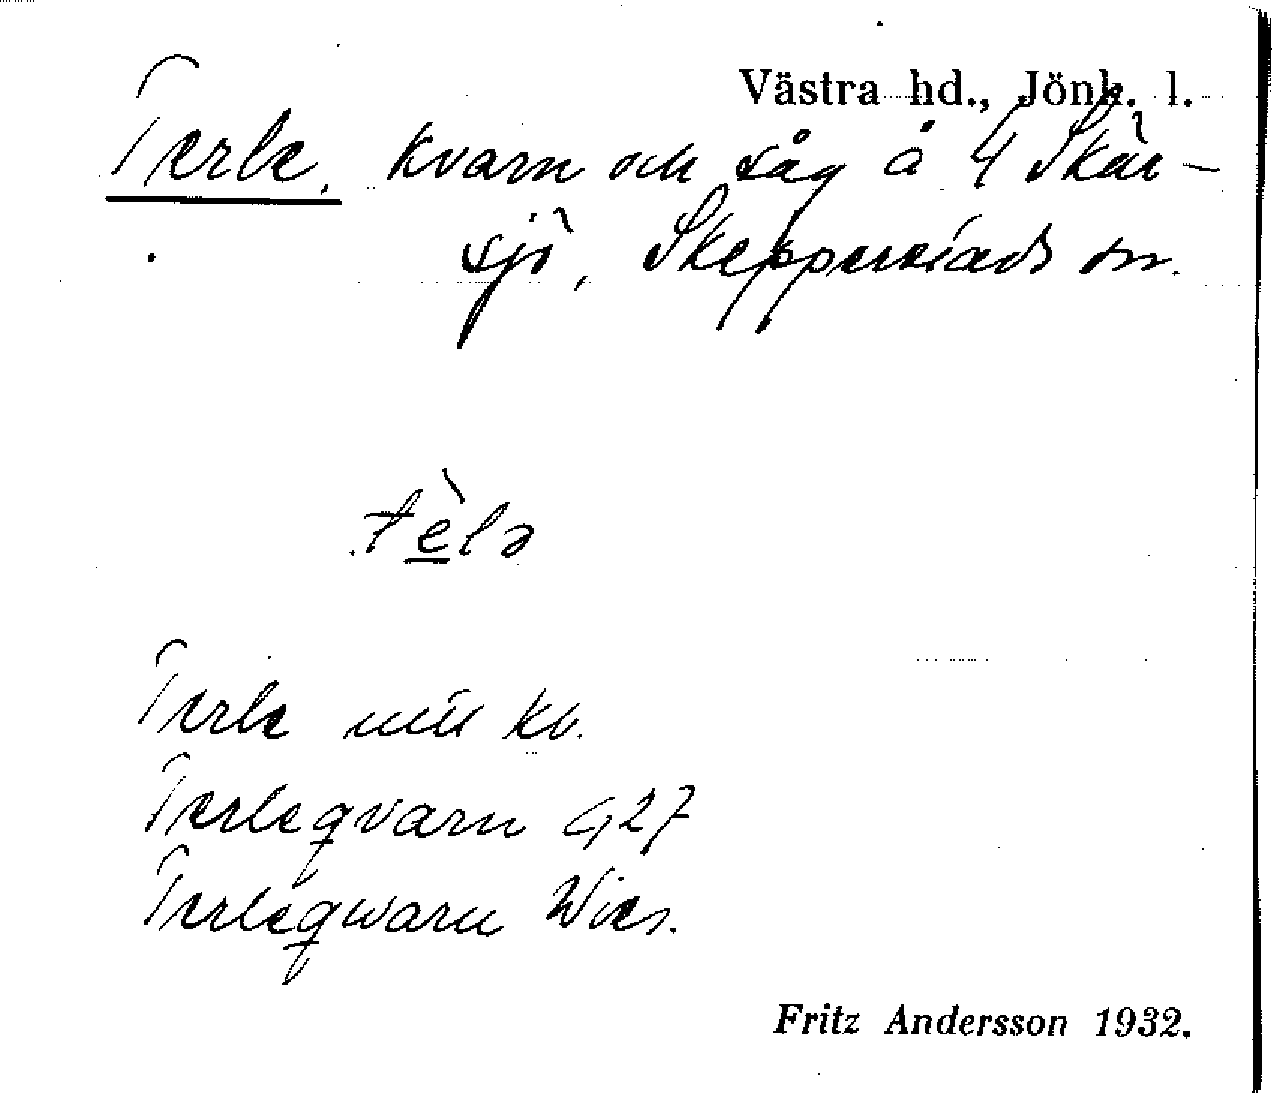 Västra hd., Jönk. l.
Terle, kvarn och såg å 4 Skär-
sjö, Skepperstads sn.
tèlə
Terle mu kv.
Terleqvarn G27
Terleqwarn Wies.
Fritz Andersson 1932.